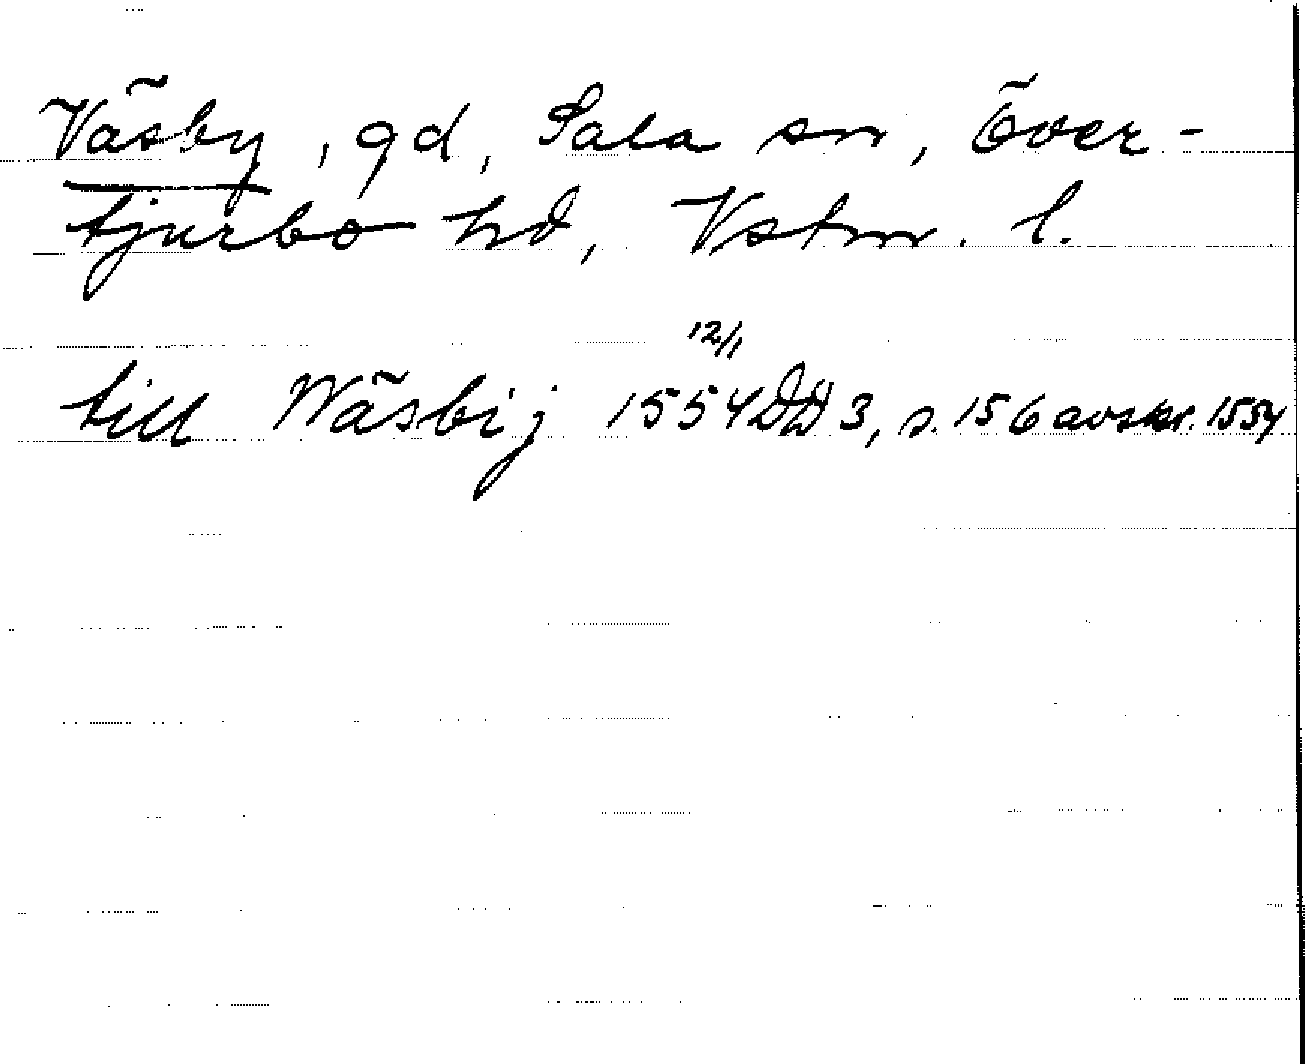 Väsby, gd, Sala sn, Över-
tjurbo hd, Vstm. l.
12/1
till Wäsbij 1554 DD 3, s. 156 avskr. 1554